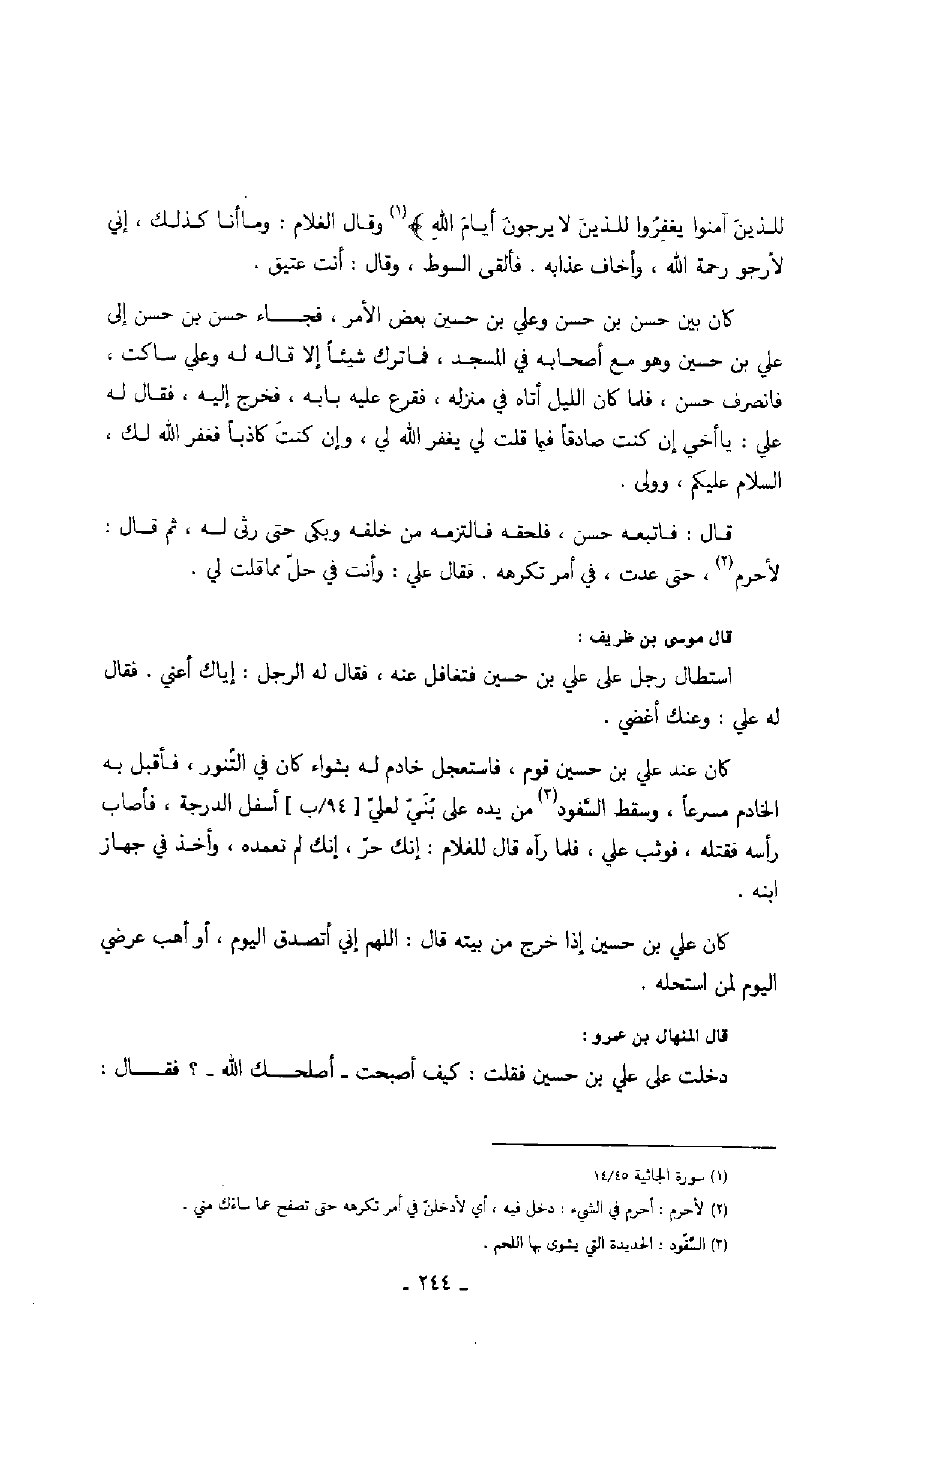 للذينَ آمنوا يغفِرُوا للذينَ لا يرجونَ أيامَ اللهِ ﴾(١) وقال الغلام : وماأنا كذلك ، إني
لأرجو رحمة الله ، وأخاف عذابه . فألقى السوط ، وقال : أنت عتيق .
كان بين حسن بن حسن وعلي بن حسين بعض الأمر ، فجاء حسن بن حسن إلى
علي بن حسين وهو مع أصحابه في المسجد ، فاترك شيئاً إلا قاله له وعلي ساكت ،
فانصرف حسن ، فلما كان الليل أتاه في منزله ، فقرع عليه بابه ، فخرج إليه ، فقال له
علي : ياأخي إن كنت صادقاً فيما قلت لي يغفر الله لي ، وإن كنتَ كاذباً فغفر الله لك ،
السلام عليكم ، وولى .
قال : فاتبعه حسن ، فلحقه فالتزمه من خلفه وبكى حتى رثى له ، ثم قال :
لأحرم(٢) ، حتى عدت ، في أمر تكرهه . فقال علي : وأنت في حلّ مماقلت لي .
قال موسى بن ظريف :
استطال رجل على علي بن حسين فتغافل عنه ، فقال له الرجل : إياك أعني . فقال
له علي : وعنك أغضي .
كان عند علي بن حسين قوم ، فاستعجل خادم له بشواء كان في التّنور ، فأقبل به
الخادم مسرعاً ، وسقط السَّفود(٣) من يده على بُنَيّ لعليّ [ ٩٤/ب ] أسفل الدرجة ، فأصاب
رأسه فقتله ، فوثب علي ، فلما رآه قال للغلام : إنك حرّ ، إنك لم تعمده ، وأخذ في جهاز
ابنه .
كان علي بن حسين إذا خرج من بيته قال : اللهم إني أتصدق اليوم ، أو أهب عرضي
اليوم لمن استحله .
قال المنهال بن عمرو :
دخلت على علي بن حسين فقلت : كيف أصبحت ـ أصلحك الله ـ ؟ فقال :
(١) سورة الجاثية ١٤/٤٥
(٢) لأحرم : أحرم في الشيء : دخل فيه ، أي لأدخلنّ في أمر تكرهه حتى تصفح عما ساءك مني .
(٣) السَّفّود : الحديدة التي يشوى بها اللحم .
ـ ٢٤٤ ـ